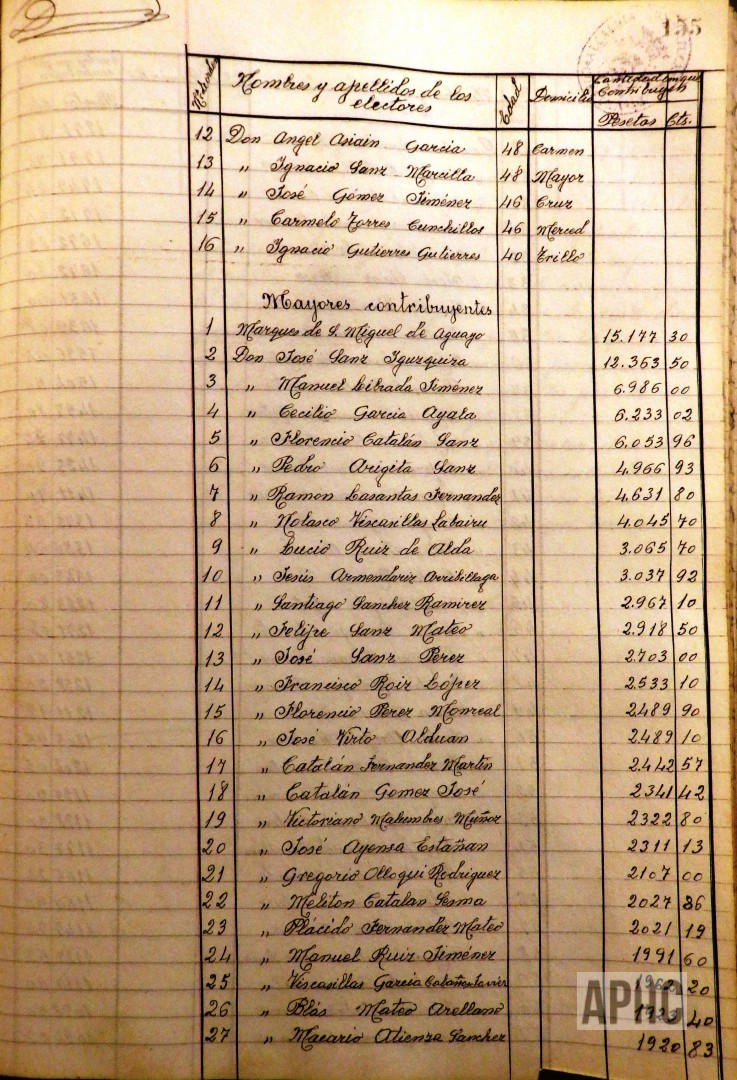 155
Nº de orden Nombres y apellidos de los electores Edad Domicilio Cantidad en que Contribuyen Pesetas Cts.
12 Don Angel Asiain Garcia 48 Carmen
13 " Ignacio Sanz Marcilla 48 Mayor
14 " José Gómez Jiménez 46 Cruz
15 " Carmelo Torres Cunchillos 46 Merced
16 " Ignacio Gutierres Gutierres 40 Trillo
Mayores contribuyentes
1 Marques de S. Miguel de Aguayo 15.177 30
2 Don José Sanz Igurquiza 12.363 50
3 " Manuel Librada Jiménez 6.986 00
4 " Cecilio Garcia Ayala 6.233 02
5 " Florencio Catalán Sanz 6.053 96
6 " Pedro Arigita Sanz 4.966 93
7 " Ramon Lasantas Fernandez 4.631 80
8 " Nolasco Viscasillas Labairu 4.045 70
9 " Lucio Ruiz de Alda 3.065 70
10 " Jesús Armendariz Arribillaga 3.037 92
11 " Santiago Sanchez Ramirez 2.967 10
12 " Felipe Sanz Mateo 2.918 50
13 " José Sanz Perez 2.703 00
14 " Francisco Roiz López 2.533 10
15 " Florencio Perez Monreal 2489 90
16 " José Virto Alduan 2.489 10
17 " Catalán Fernandez Martin 2.442 57
18 " Catalán Gomez José 2341 42
19 " Victoriano Malumbres Muñoz 2322 80
20 " José Ayensa Estañan 2311 13
21 " Gregorio Olloqui Rodriguez 2107 00
22 " Meliton Catalan Sesma 2027 86
23 " Plácido Fernandez Mateo 2021 19
24 " Manuel Ruiz Jiménez 1991 60
25 " Viscasillas Garcia 20
26 " Blás Mateo Arellano 40
27 " Macario Atienza Sanchez 1920 83
APHC